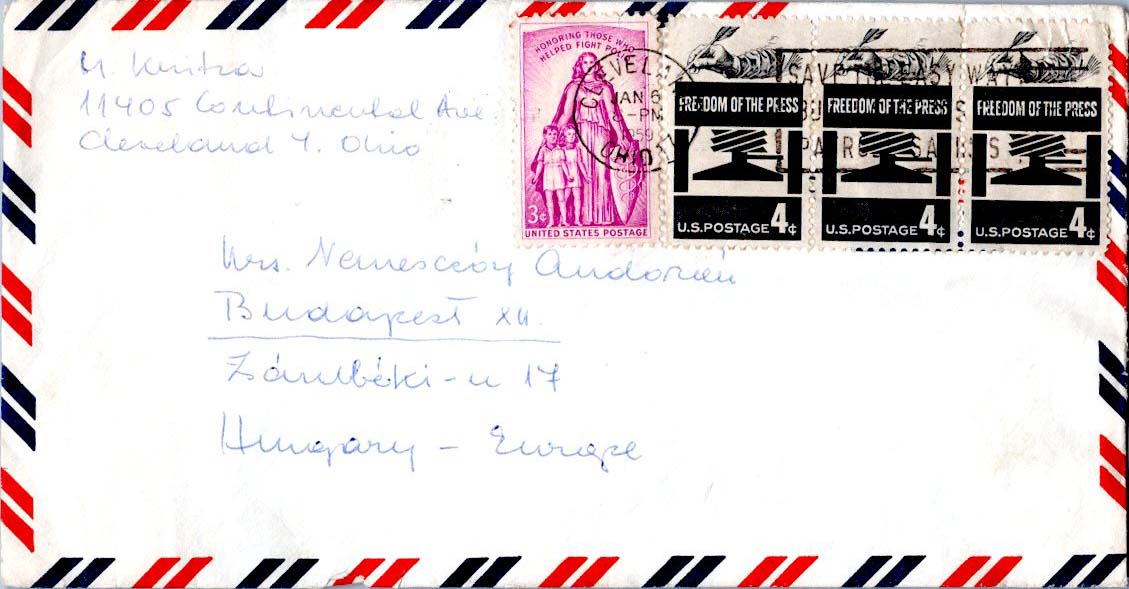 11405 Continental Ave.
Cleveland 4. Ohio
HONORING THOSE WHO
HELPED FIGHT POLIO
3¢
UNITED STATES POSTAGE
CLEVELAND
JAN 6
PM
1959
OHIO
FREEDOM OF THE PRESS
U.S.POSTAGE 4¢
FREEDOM OF THE PRESS
U.S.POSTAGE 4¢
FREEDOM OF THE PRESS
U.S.POSTAGE 4¢
SAVE THE EASY WAY
Mrs. Nemesczóy Andorné
Budapest XII.
Zsámbéki-u 17
Hungary - Europe